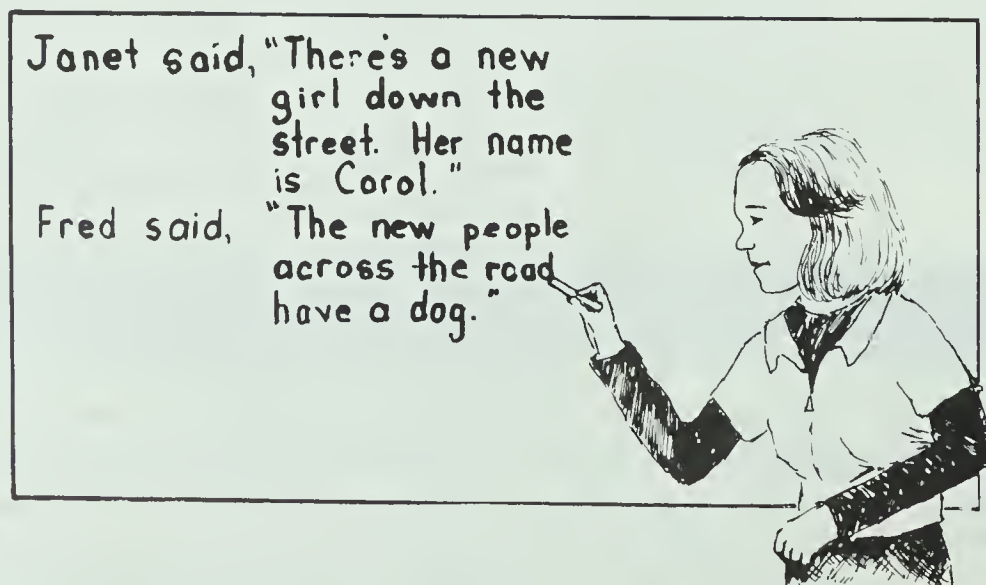 Janet said, "There's a new
girl down the
street. Her name
is Carol."
Fred said, "The new people
across the road
have a dog."